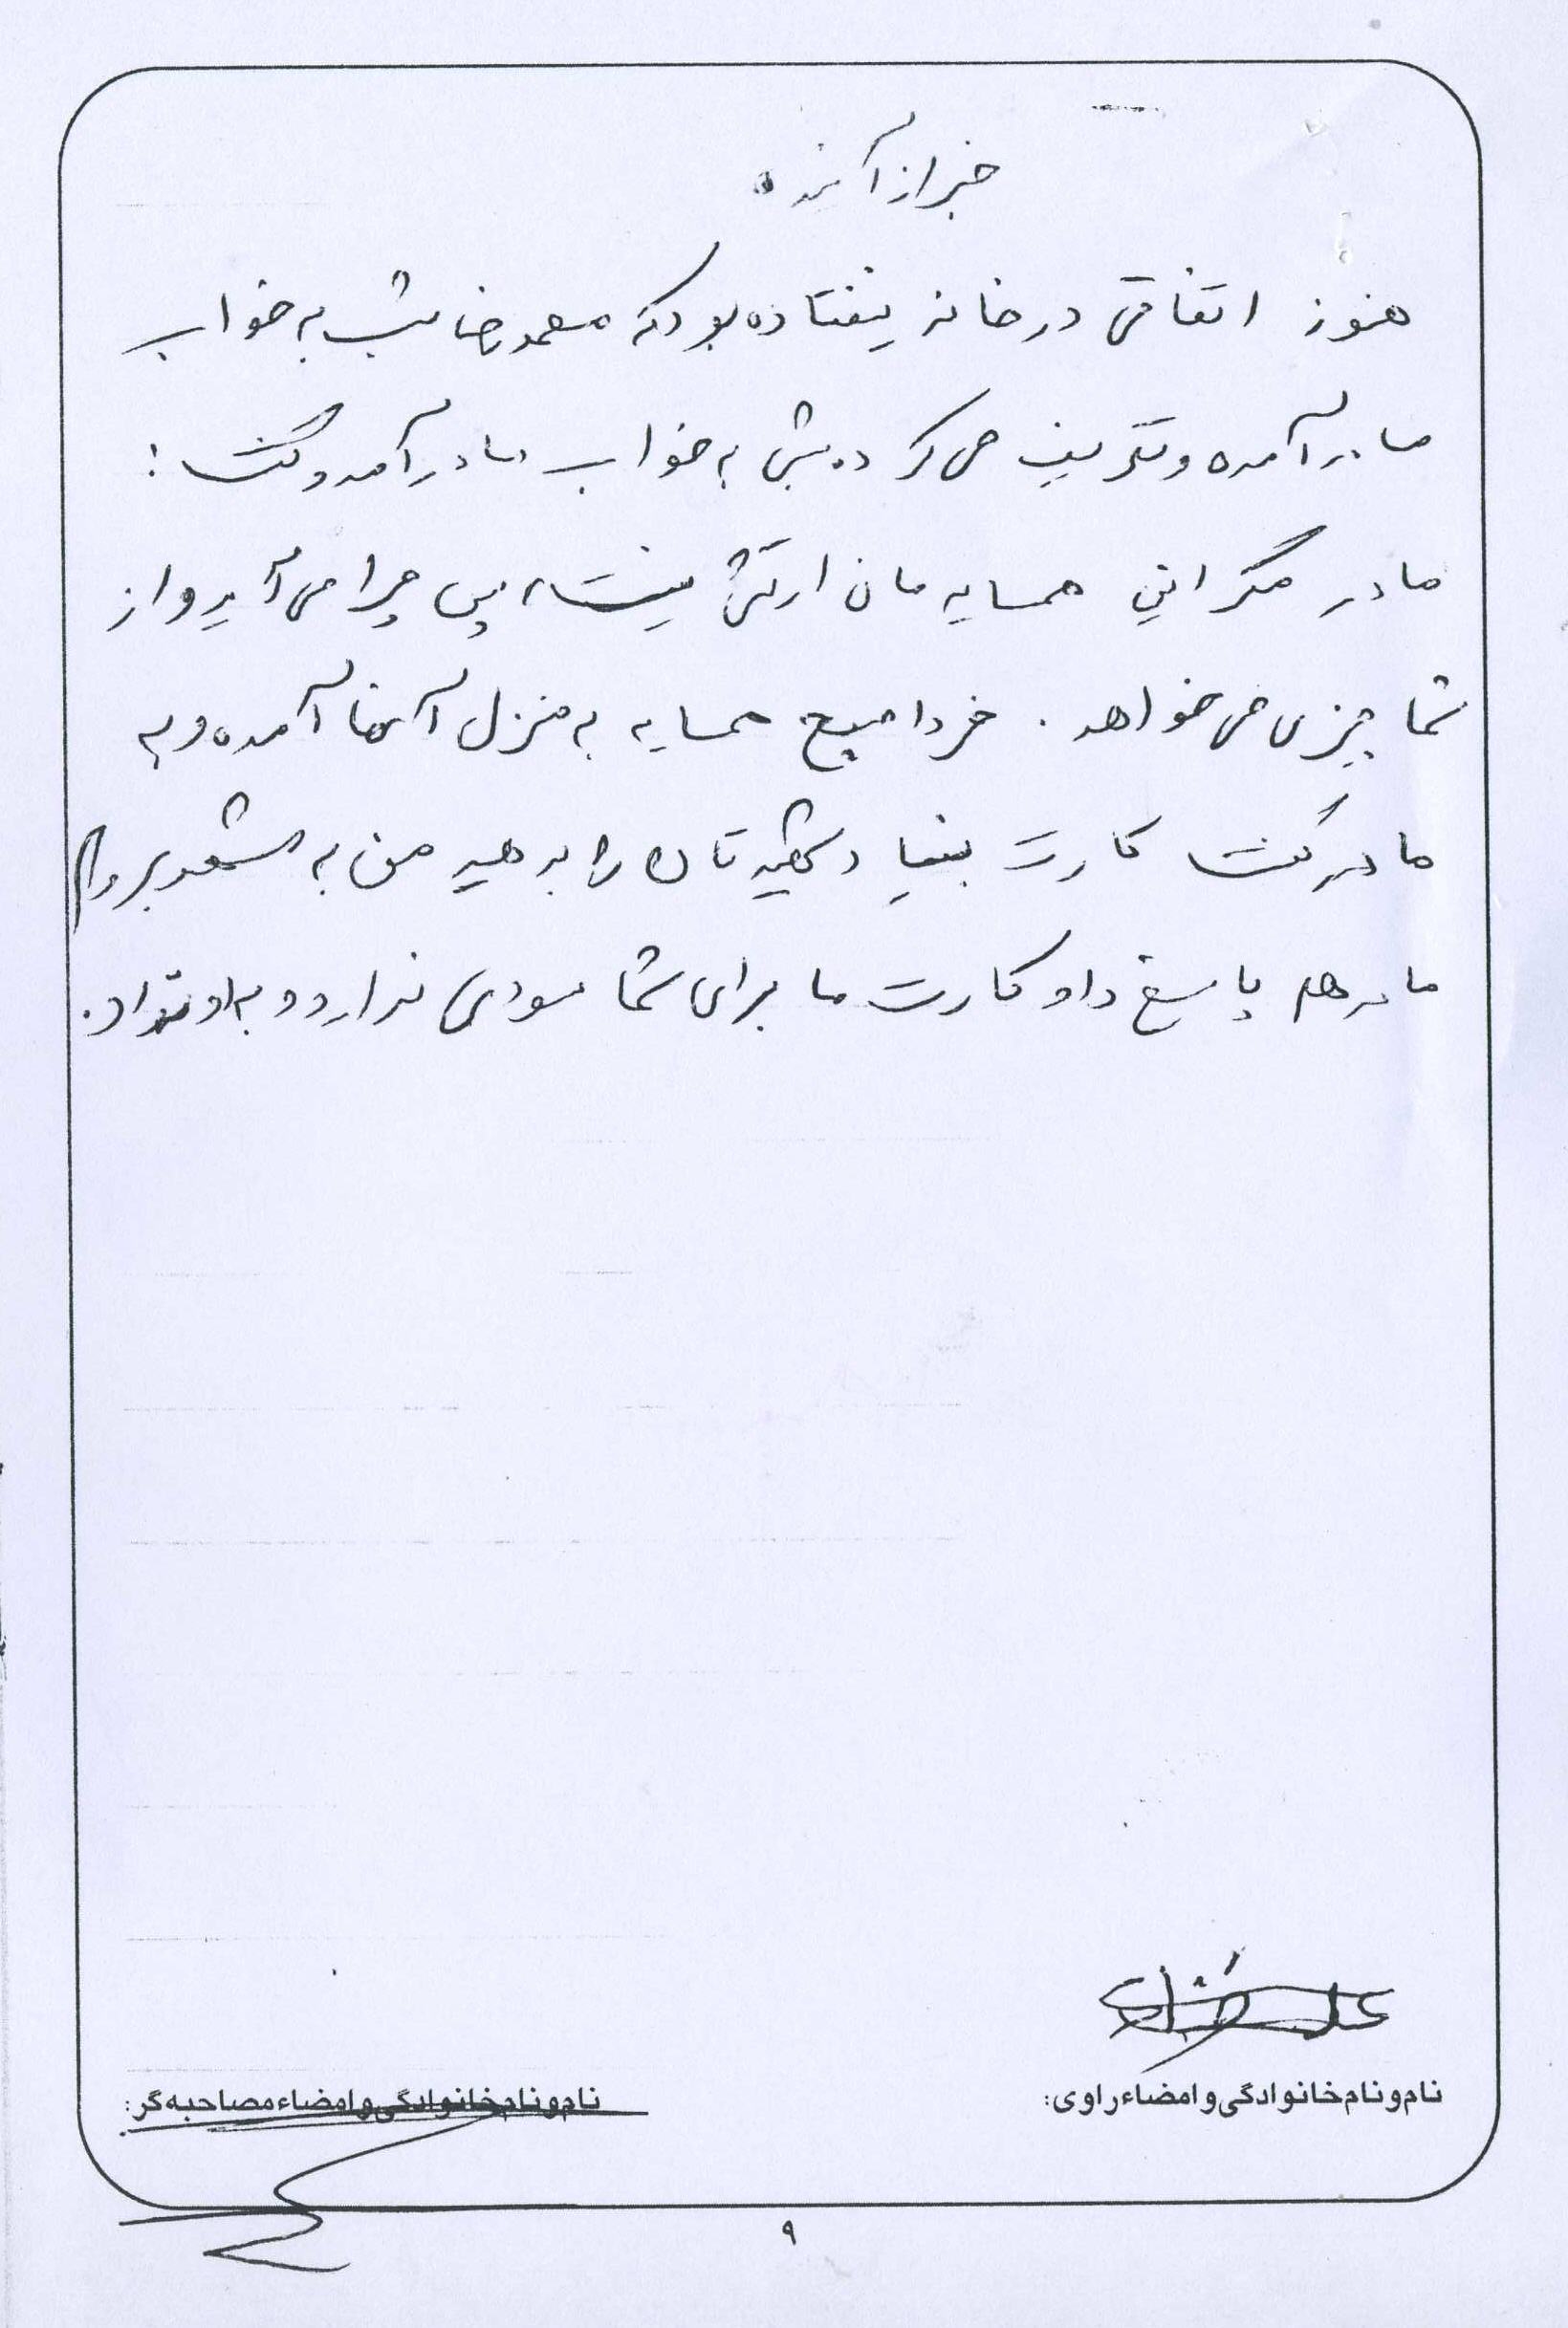 خبر از آینده
هنوز اتفاقی در خانه نیفتاده بود که محمدرضا شب به خواب
مادر آمده و تعریف می کرد. شبی به خواب مادر آمد و گفت:
مادر مگر این همسایه مان ارتشی نیست، پس چرا می آید و از
شما چیزی می خواهد. فردا صبح همسایه به منزل آنها آمده و به
مادر گفت کارت بنیاد شهیدتان را بدهید من به مشهد بروم
مادر هم پاسخ داد کارت ما برای شما سودی ندارد و به او نداد.
نام و نام خانوادگی و امضاء راوی:
نام و نام خانوادگی و امضاء مصاحبه گر:
۹